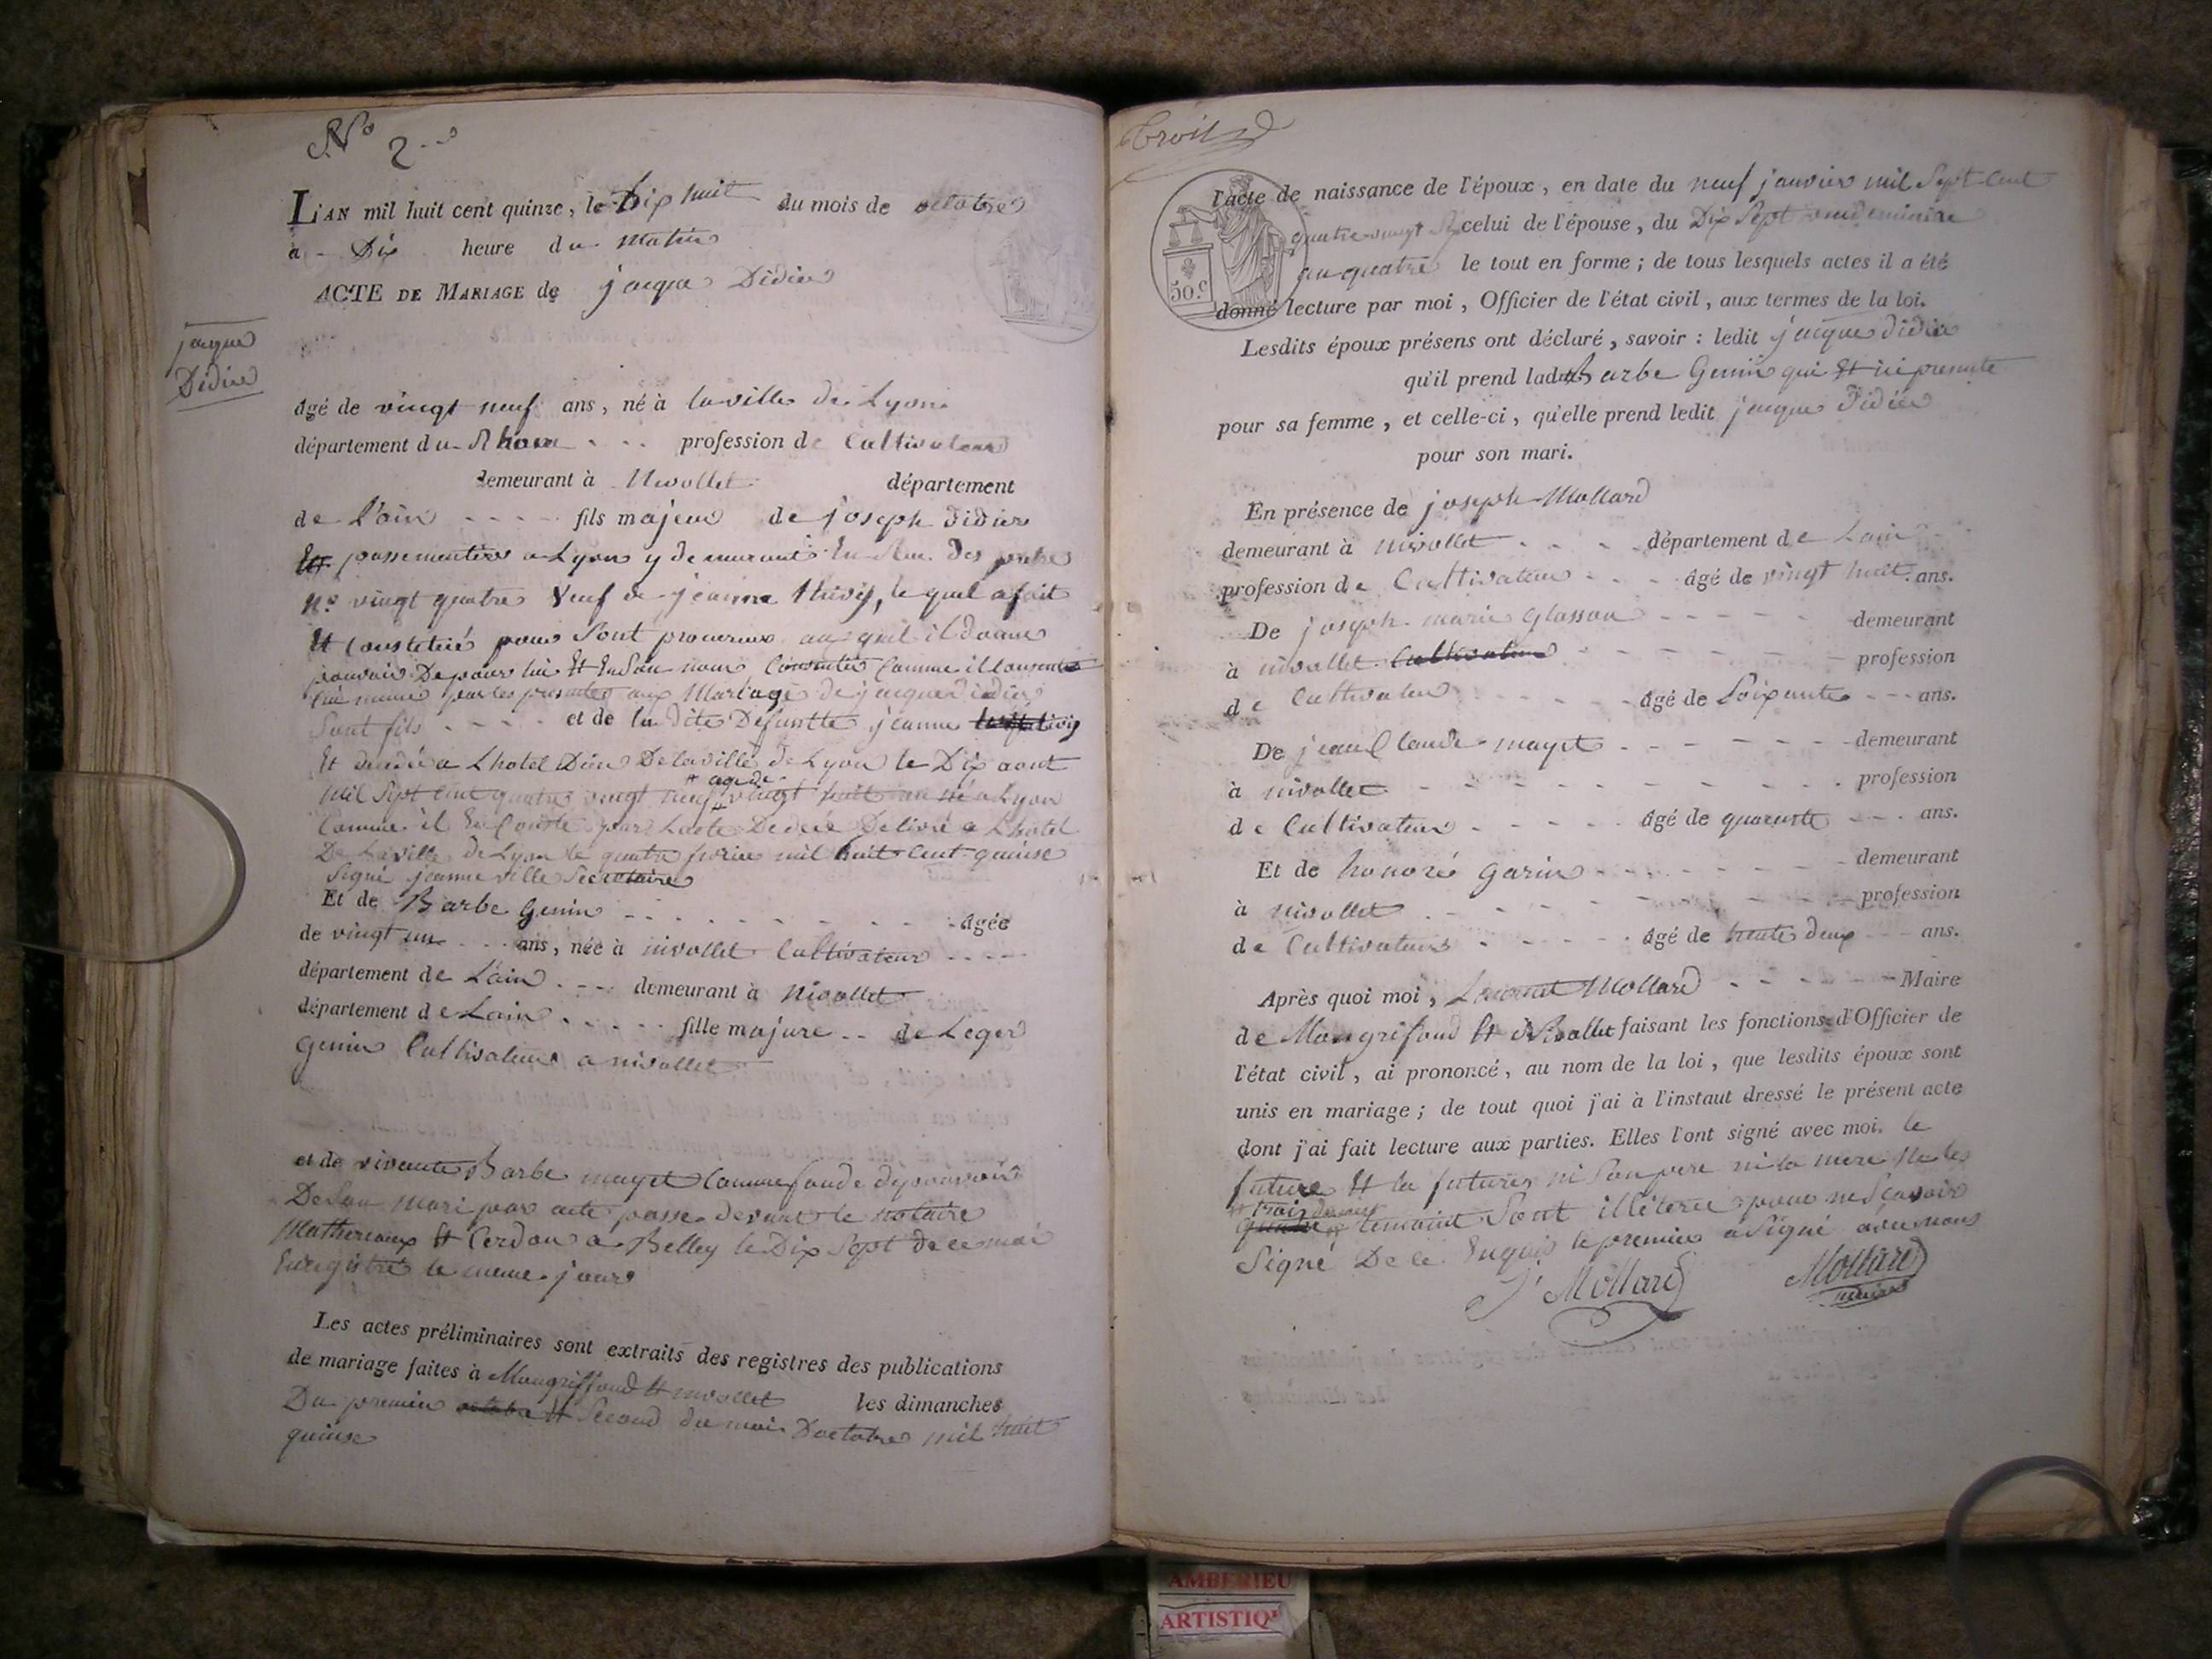 N° 2
L'AN mil huit cent quinze, le Dix huit du mois de octobre
à Dix heure du matin
ACTE DE MARIAGE de jacque Didier
jacque
Didier
âgé de vingt neuf ans, né à la ville de Lyon
département du Rhone profession de Cultivateur
demeurant à Nivollet département
de L'ain fils majeur de joseph Didier
passementier a Lyon y demeurant En Rue des
n° vingt quatre Veuf de jeanne thivy, le quel a fait
Et Constitué pour Sont procureur au quel il donne
pouvoir De pour lui Et En Son nom Consentir Comme il Consent
lui meme par les presentes aux Mariage de jacque didier
Sont fils et de la dite Defuntte jeanne
Et decedée a L'hotel Dieu De la ville de Lyon le Dix aout
mil Sept cent quatre vingt neuf agé de vingt huit an né a Lyon
Comme il En Conste par L'acte De decé Delivré a L'hotel
De La ville de Lyon le quatre fevrier mil huit Cent quinse
Signé jeanne ville Secretaire
Et de Barbe Genin âgée
de vingt un ans, née à nivollet Cultivateur
département de L'ain demeurant à Nivollet
département de Lain fille majure de Leger
Genin Cultivateur a nivollet
et de vivante Barbe mayet Comme fondé de pouvoir
De Son mari par acte passé devant le notaire
Et Cerdon a Belley le Dix Sept de ce moi
Enregistré le meme jour
Les actes préliminaires sont extraits des registres des publications
de mariage faites à Mongriffond Et nivollet les dimanches
Du premier octobre Et Second du moi D'octobre mil huit
quinse
trois
50.c
l'acte de naissance de l'époux, en date du neuf janvier mil Sept Cent
quatre vingt celui de l'épouse, du Dix Sept vendemiaire
an quatre le tout en forme; de tous lesquels actes il a été
donné lecture par moi, Officier de l'état civil, aux termes de la loi.
Lesdits époux présens ont déclaré, savoir : ledit jacque didier
qu'il prend ladite Barbe Genin qui Et ici presente
pour sa femme, et celle-ci, qu'elle prend ledit jacque Didier
pour son mari.
En présence de joseph Mollard
demeurant à nivollet département de Lain
profession de Cultivateur âgé de vingt huit ans.
De joseph marie Glasson demeurant
à nivollet Cultivateur profession
de Cultivateur âgé de Soixante ans.
De jean Claude mayet demeurant
à nivollet profession
de Cultivateur âgé de quarente ans.
Et de honoré Garin demeurant
à nivollet profession
de Cultivateur âgé de trente deux ans.
Après quoi moi, Mollard Maire
de Mongrifond Et Nivollet faisant les fonctions d'Officier de
l'état civil, ai prononcé, au nom de la loi, que lesdits époux sont
unis en mariage; de tout quoi j'ai à l'instaut dressé le présent acte
dont j'ai fait lecture aux parties. Elles l'ont signé avec moi. le
future Et la future ni Son pere ni la mere ni les
trois derniers
quatre temoint Sont illéterée pour ne Scavoir
Signé De ce Enquis le premier a Signé avec nous
J. Mollard Mollard
maire
AMBERIEU
ARTISTIQ